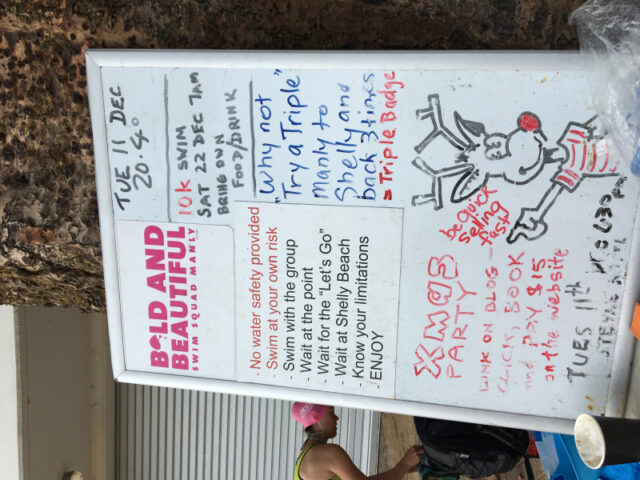 BOLD AND
BEAUTIFUL
SWIM SQUAD MANLY
TUE 11 DEC
20.4°
10K SWIM
SAT 22 DEC 7AM
BRING OWN
FOOD/DRINK
- No water safety provided
- Swim at your own risk
- Swim with the group
- Wait at the point
- Wait for the "Let's Go"
- Wait at Shelly Beach
- Know your limitations
- ENJOY
"Why not
"Try a Triple"
Manly to
Shelly and
back 3 times
= Triple Badge
XMAS
PARTY
be quick
selling
fast
LINK ON BLOG -
CLICK, BOOK
and PAY $15
on the website
TUES 11th
630pm